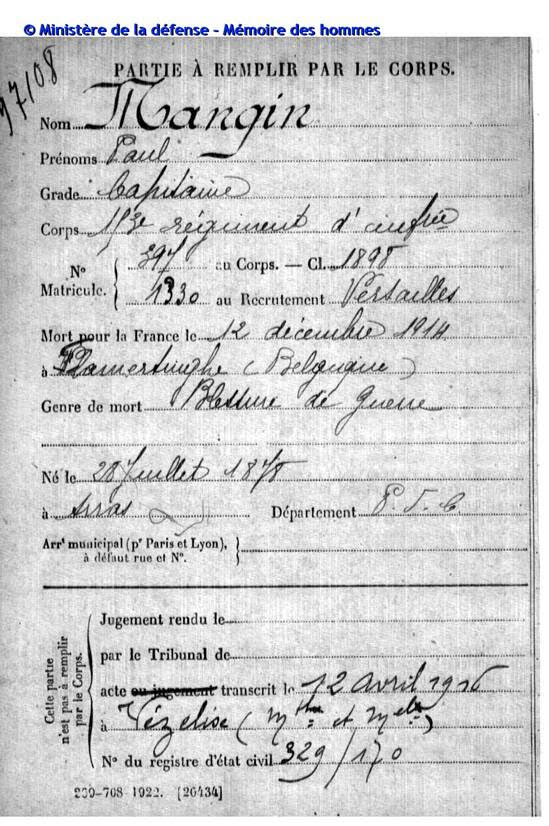 © Ministère de la défense - Mémoire des hommes
PARTIE À REMPLIR PAR LE CORPS.
Nom Mangin
Prénoms Paul
Grade Capitaine
Corps régiment d'inf
N° 397 au Corps. — Cl. 1898
Matricule. 1330 au Recrutement Versailles
Mort pour la France le 12 décembre 1914
à Vlamertinghe (Belgique)
Genre de mort Blessure de Guerre
Né le 28 Juillet 1878
à Arras Département P. d. C
Arrt municipal (pr Paris et Lyon),
à défaut rue et N°.
Cette partie
n'est pas à remplir
par le Corps.
Jugement rendu le
par le Tribunal de
acte ou jugement transcrit le 12 avril 1916
à Vézelise (Mthe et Melle)
N° du registre d'état civil 329/170
200-708 1922. [26434]